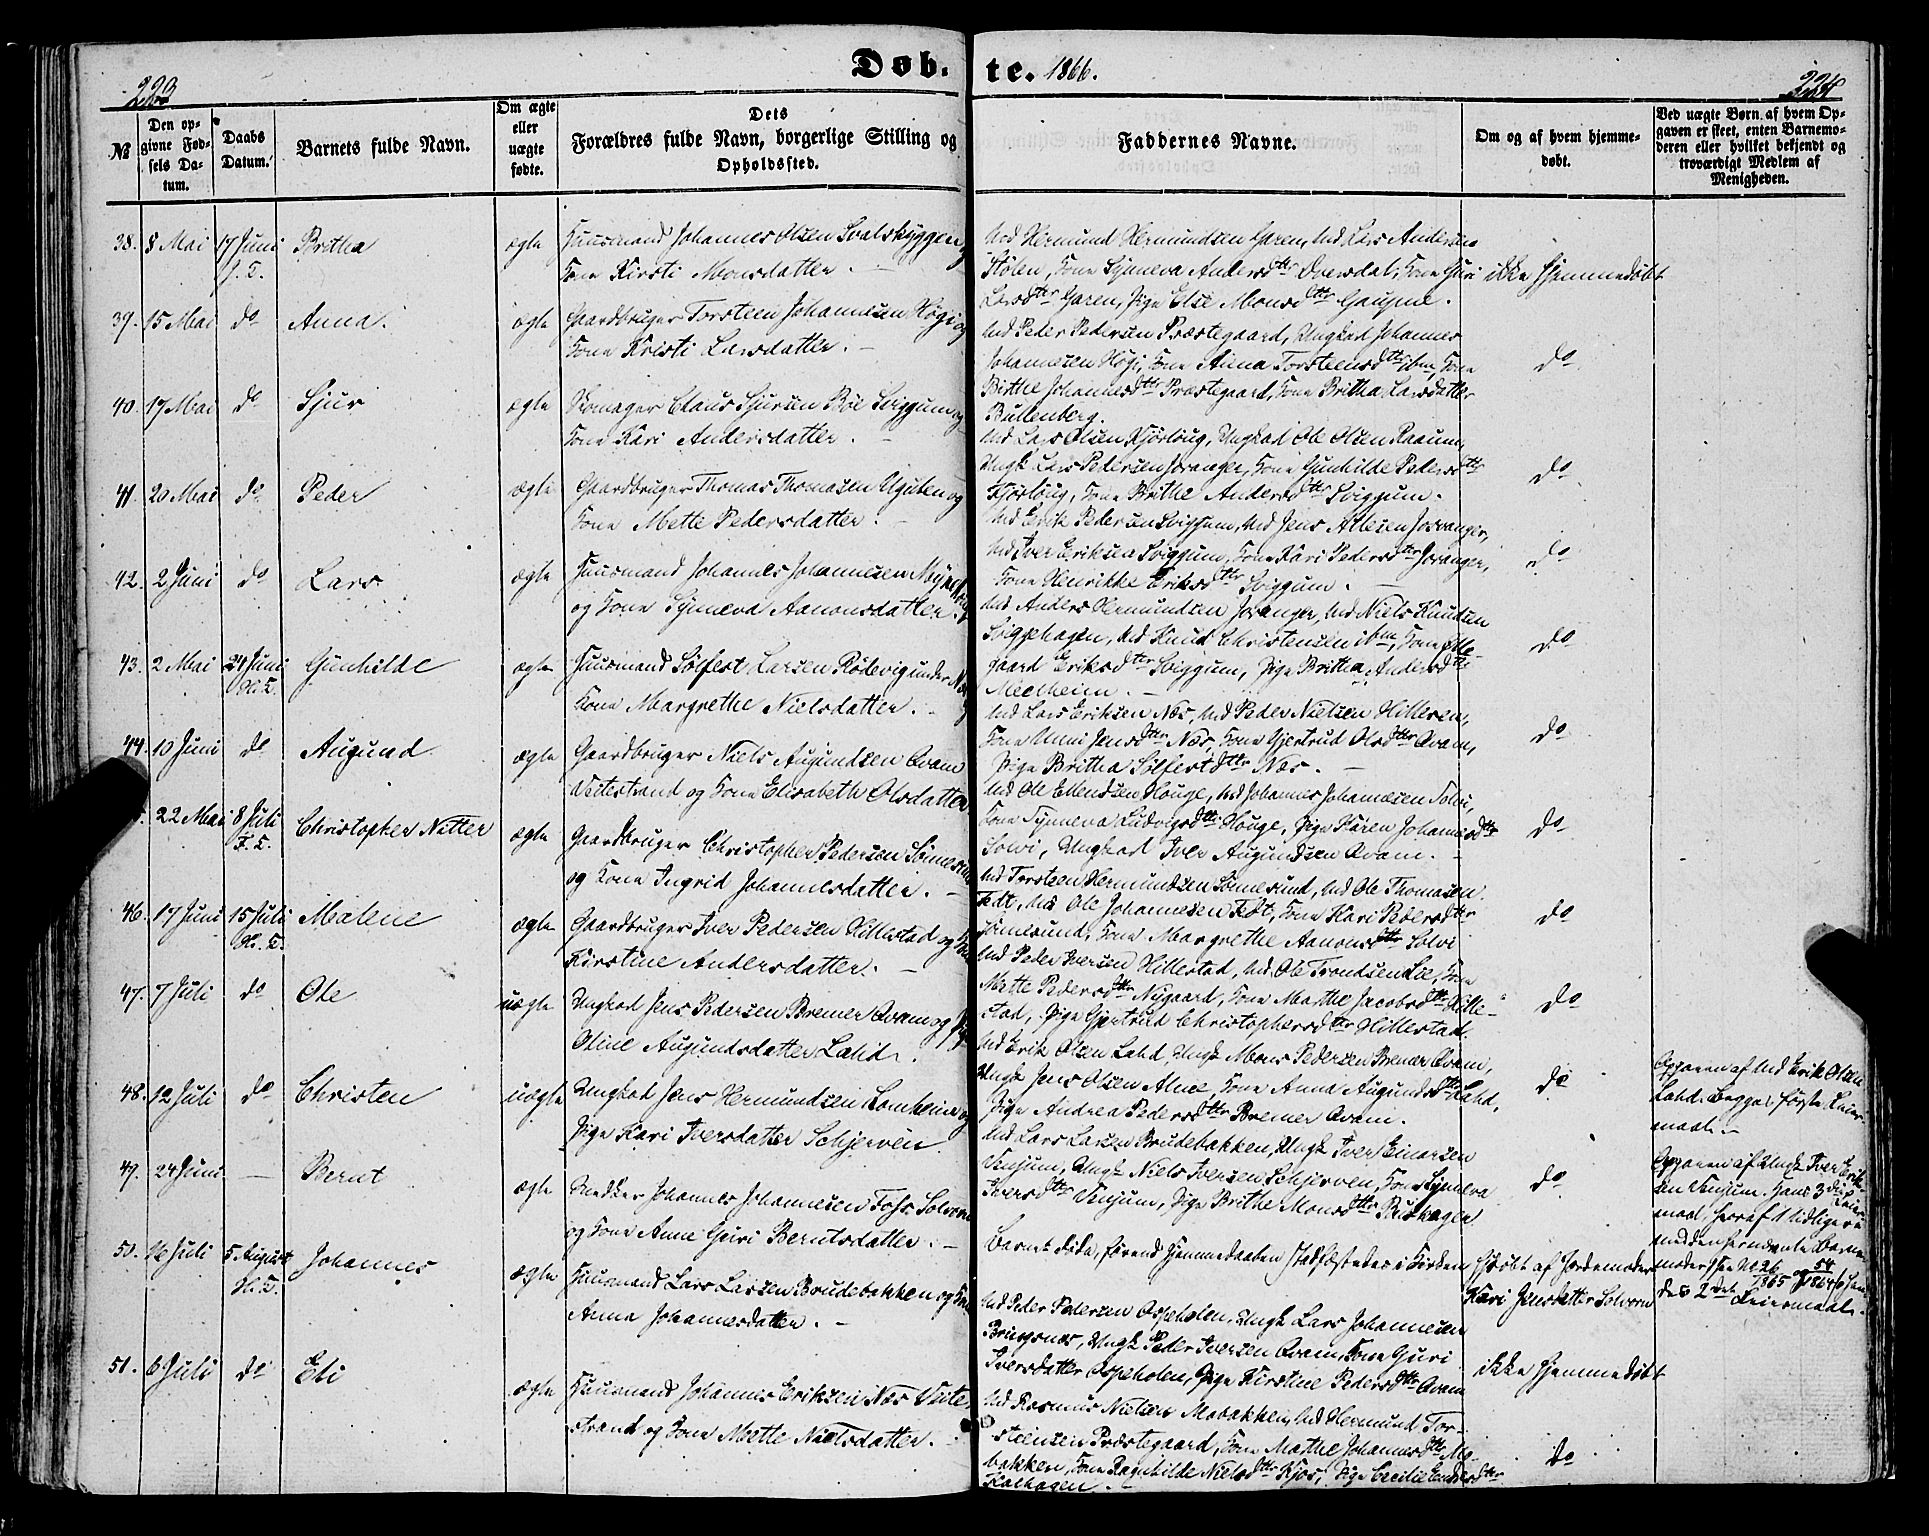 Døb. te. 1866.
223 224
№
Den opgivne Fødsels Datum.
Daabs Datum.
Barnets fulde Navn.
Om ægte eller uægte fødte.
Dets Forældres fulde Navn, borgerlige Stilling og Opholdssted.
Faddernes Navne.
Om og af hvem hjemmedøbt.
Ved uægte Børn, af hvem Opgaven er skeet, enten Barnemoderen eller hvilket bekjendt og troværdigt Medlem af Menigheden.
38. 8 Mai 17 Juni Britha ægte Huusmand Johannes Olsen Svalskyggen og
Kone Kirsti Monsdatter. —
Md Hermund Hermundsen Garen, Md Lars Andersen
Stølen, Kone Synneva Andersdtter Dversdal, Kone Guri
Larsdtter Garen, Pige Else Monsdtter Gaupne.
ikke hjemmedøbt
39. 15 Mai do Anna. ægte Gaardbruger Torsteen Johannesen Høgi og
Kone Kristi Larsdatter. —
Md Peder Pedersen Præstegaard, Ungkad Johannes
Johannesen Høgi, Kone Anna Torsteensdtter ibm, Kone
Birthe Johannesdtter Præstegaard, Kone Britha Larsdatter
Bullenberg.
do
40. 17 Mai do Sjur ægte Skomager Claus Sjursen Bøe Sviggum og
Kone Kari Andersdatter. —
Md Lars Olsen Kjørloug, Ungkad Ole Olsen Raaum,
Ungk Lars Pedersen Joranger, Kone Gunhilde Pedersdtter
Kjørloug, Kone Brithe Andersdtter Sviggum.
do
41. 20 Mai do Peder ægte Gaardbruger Thomas Thomasen Uguten og
Kone Mette Pedersdatter. —
Md Erik Pedersen Sviggum, Md Jens Atlesen Joranger,
Md Iver Eriksen Sviggum, Kone Kari Pedersdtter Joranger,
Kone Henrikke Eriksdtter Sviggum.
do
42. 2 Juni do Lars ægte Huusmand Johannes Johannesen
og Kone Synneva Aanonsdatter.
Md Anders Hermundsen Joranger, Md Niels Knudsen
Sviggehagen, Md Knud Christensen ibm, Kone
Eriksdtter Sviggum, Pige Britha Andersdtter
Melheim. —
do
43. 2 Mai 24 Juni Gunhilde ægte Huusmand Sølfest Larsen Rødevig under Næs
Kone Margrethe Nielsdatter.
Md Lars Eriksen Næs, Md Peder Nielsen Hilleren,
Kone Unni Jensdtter Næs, Kone Gjertrud Olsdtter Qvam,
Pige Britha Sølfestdtter Næs. —
do
44. 10 Juni do Augund ægte Gaardbruger Niels Augundsen Qvam
Veitestrand og Kone Elisabeth Olsdatter
Md Ole Ellendsen Houge, Md Johannes Johannesen Solvi,
Kone Synneva Ludvigsdtter Houge, Pige Karen Johannesdtter
Solvi, Ungkad Iver Augundsen Qvam. —
do
22 Mai 8 Juli Christopher Nitter ægte Gaardbruger Christopher Pedersen Sømesund
og Kone Ingrid Johannesdatter. —
Md Torsteen Hermundsen Sømesund, Md Ole Thomasen
Fedt, Md Ole Johannesen Fedt, Kone Kari Pedersdtter
Sømesund, Kone Margrethe Aanonsdtter Solvi
do
46. 17 Juni 15 Juli Malene ægte Gaardbruger Iver Pedersen Hillestad og Kone
Kirstine Andersdatter. —
Md Peder Iversen Hillestad, Md Ole Trondsen Lie, Kone
Mette Pedersdtter Nygaard, Kone Marthe Jacobsdtter Hille-
stad, Pige Gjertrud Christophersdtter Hillestad.
do
47. 7 Juli do Ole uægte Ungkad Jens Pedersen Bremer Qvam og Pige
Oline Augundsdatter Lahd.
Md Erik Olsen Lahd, Ungk Mons Pedersen Bremer Qvam,
Ungk Jens Olsen Alme, Kone Anna Augundsdtter Lahd,
Pige Andrea Pedersdtter Bremer Qvam.
do
Opgaven af Md Erik Olsen
Lahd. Begges første Leier-
maal. —
48. 12 Juli do Christen uægte Ungkad Jens Hermundsen Lomheim og
Pige Kari Iversdatter Schjerven
Md Lars Larsen Brudebakken, Ungk Iver Einersen
Venjum, Ungk Niels Iversen Schjerven, Kone Synneva
Iversdtter Venjum, Pige Brithe Monsdtter Ruskagen
do
Opgaven af Ungk Iver Erik-
sen Venjum. Hans 3die Leier-
maal, heraf 1 tidligere
med den fornævnte Barne-
moder see No 26/1865 og 54/1864, hen-
des 2det Leiermaal.
49. 24 Juni — Bernt ægte Snedker Johannes Johannesen Fohs Solvorn
og Kone Anne Guri Berntsdatter. —
Barnet døde, førend Hjemmedaaben stadfæstedes i Kirken
Hjdøbt af Jordemoder
Kari Jensdatter Solvorn
50. 16 Juli 5 August Johannes ægte Huusmand Lars Larsen Brudebakken og Kone
Anna Johannesdatter. —
Md Peder Pedersen Ospeholen, Ungk Lars Johannesen
Bringsnæs, Ungk Peder Iversen Qvam, Kone Guri
Iversdatter Ospeholen, Pige Kirstine Pedersdtter Qvam
ikke hjemmedøbt
51. 6 Juli do Eli ægte Huusmand Johannes Eriksen Næs Veite-
strand og Kone Mette Nielsdatter. —
Md Rasmus Nielsen Mobakken, Md Hermund Tor-
steensen Præstegaard, Kone Marthe Johannesdtter Mo-
bakken, Kone Ragnhilde Nielsdtter Kjos, Pige Cecilie
Kalhagen. —
do